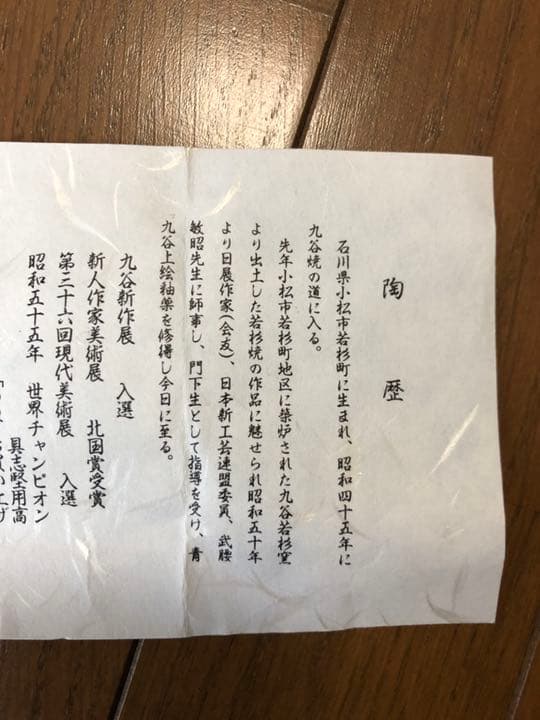 陶歴
石川県小松市若杉町に生まれ、昭和四十五年に
九谷焼の道に入る。
先年小松市若杉町地区に築炉された九谷若杉窯
より出土した若杉焼の作品に魅せられ昭和五十年
より日展作家(会友)、日本新工芸連盟委員、武腰
敏昭先生に師事し、門下生として指導を受け、青
九谷上絵釉薬を修得し今日に至る。
九谷新作展 入選
新人作家美術展 北国賞受賞
第三十六回現代美術展 入選
昭和五十五年 世界チャンピオン
具志堅用高